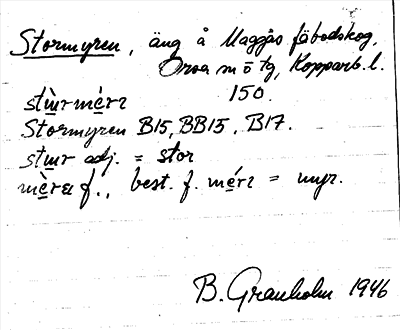 Stormyren, äng å Maggås fäbodskog,
Orsa m ö tg, Kopparb. l.
150.
stɯ̀rmèrɪ
Stormyren B15, BB15, B17.
stɯr adj. = stor
mèra f., best. f. mérɪ = myr.
B. Granholm 1946